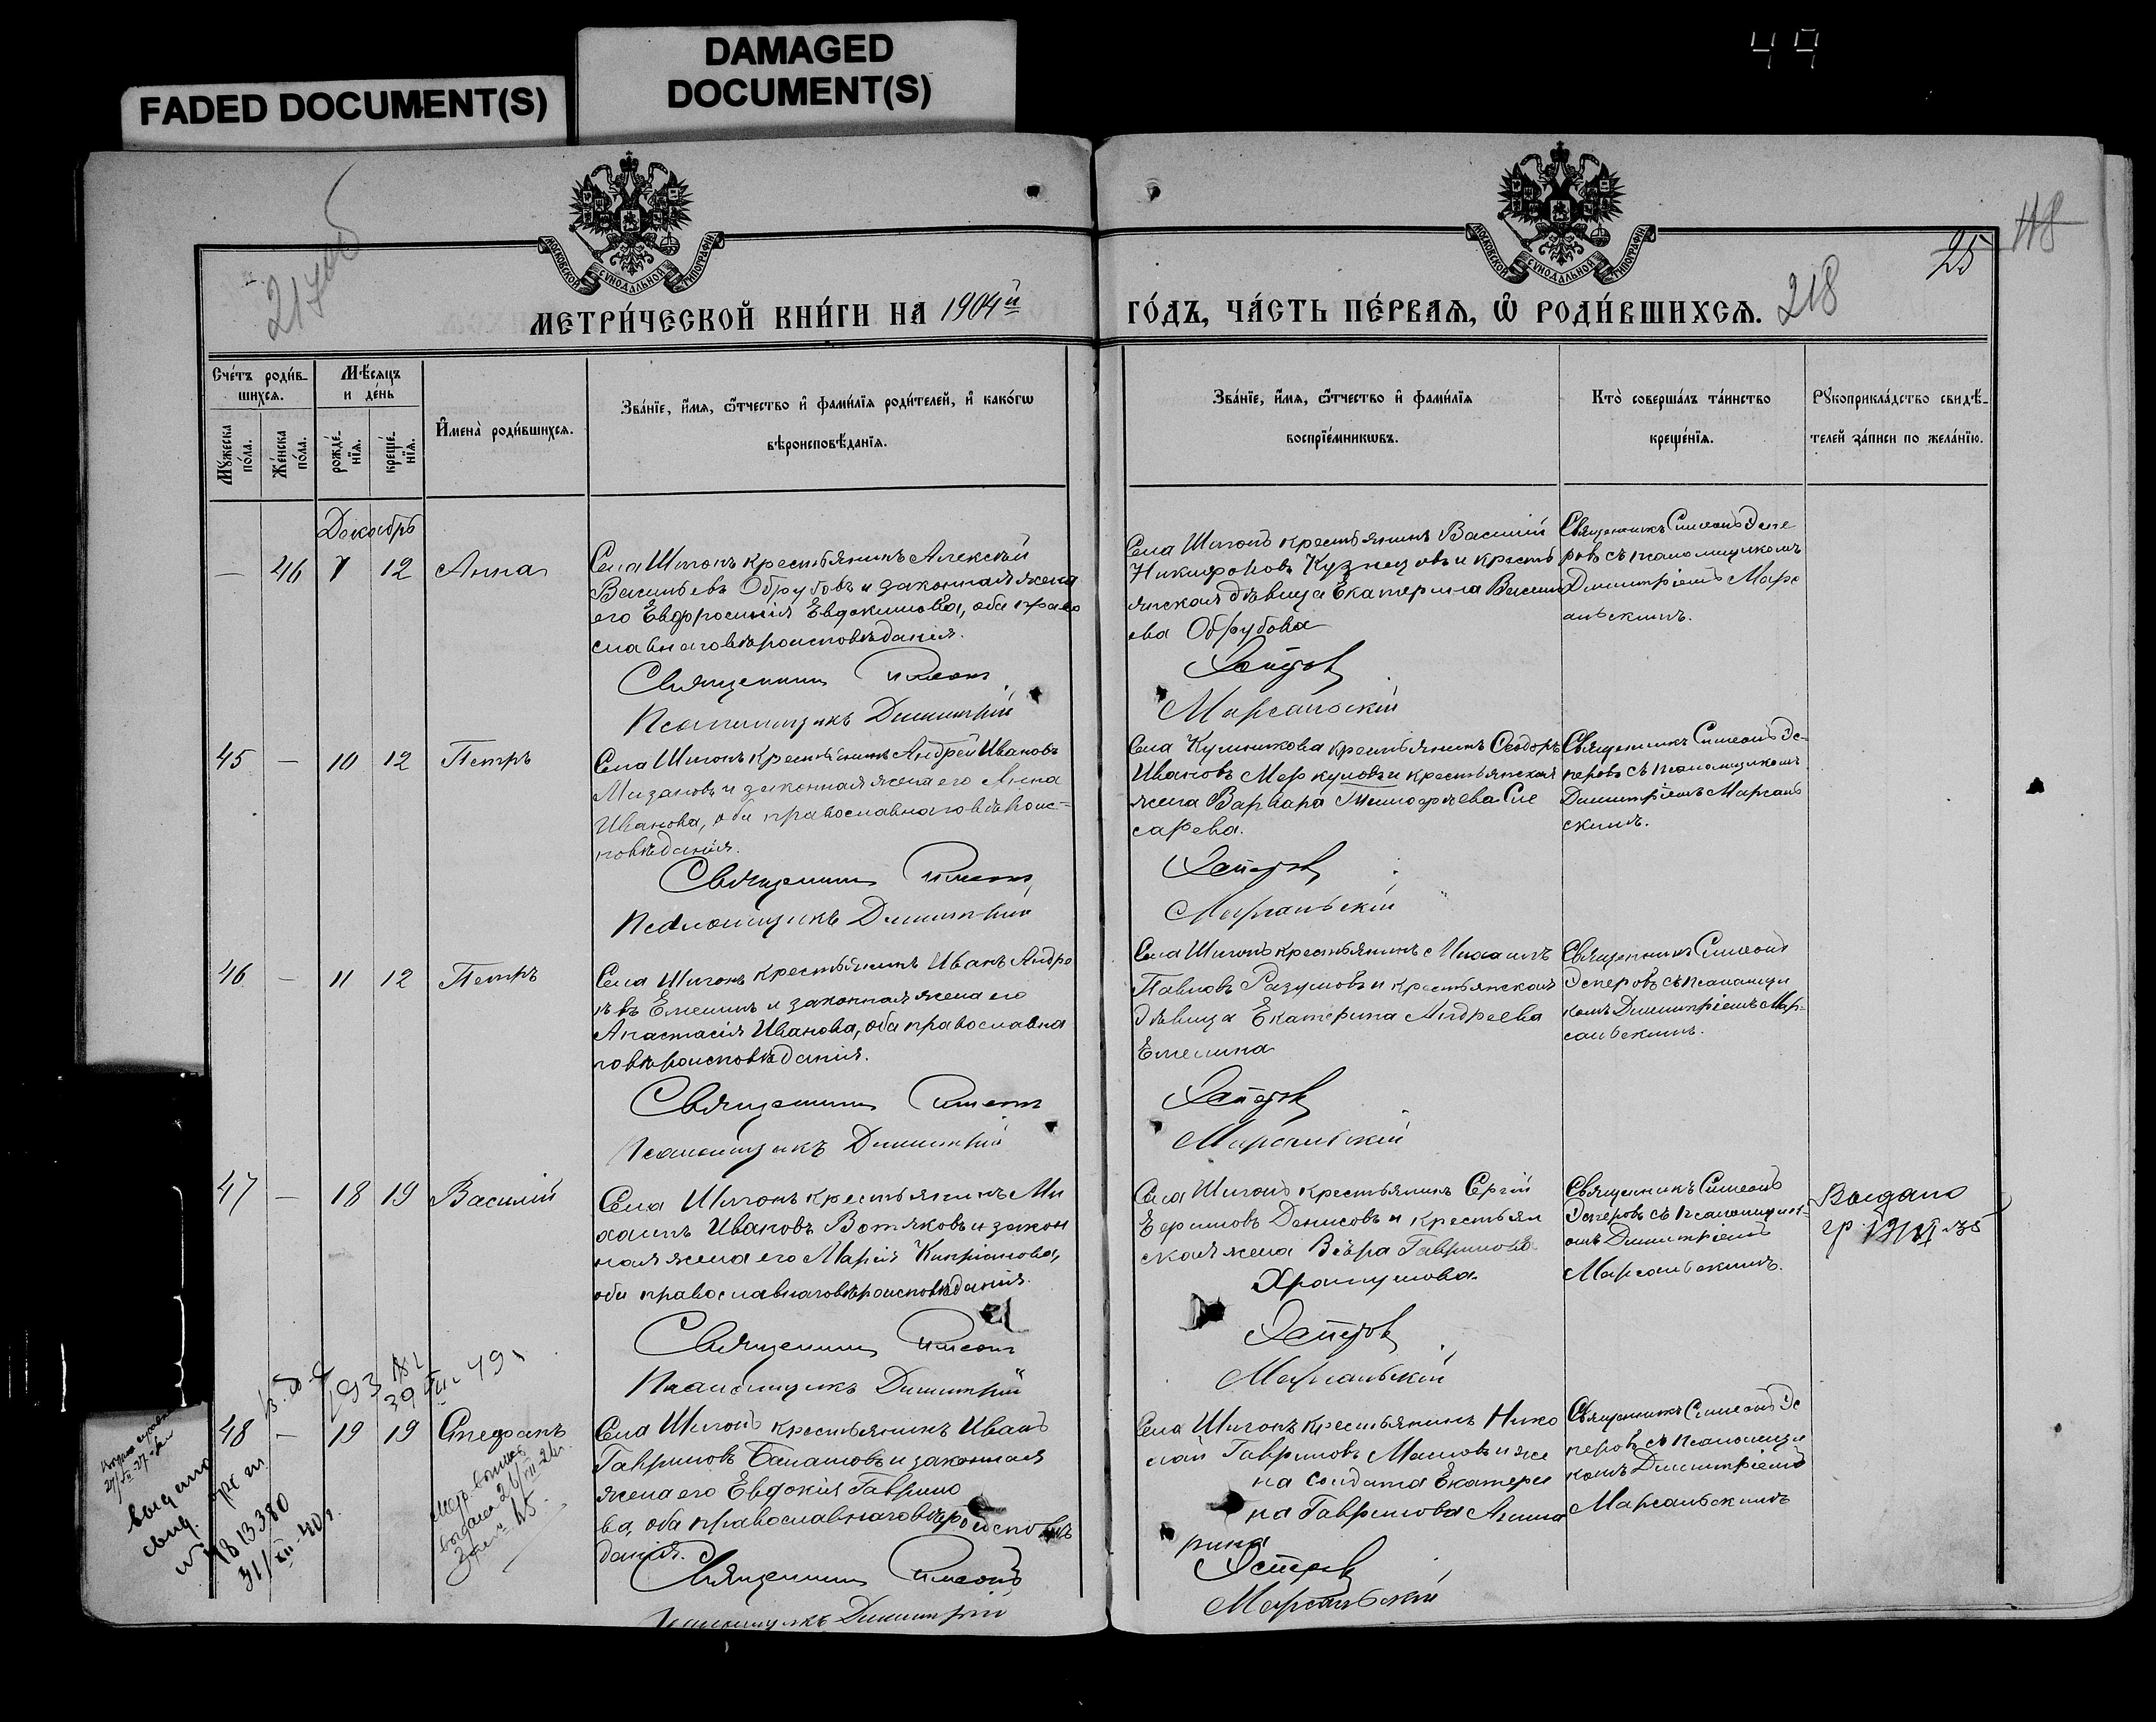 FADED DOCUMENT(S)
DAMAGED
DOCUMENT(S)
49
217об
МОСКОВСКОЙ СѴНОДАЛЬНОЙ ТИПОГРАФІИ
МОСКОВСКОЙ СѴНОДАЛЬНОЙ ТИПОГРАФІИ
25
118
МЕТРИ́ЧЕСКОЙ КНИ́ГИ НА 1904й
ГО́ДЪ, ЧА́СТЬ ПЕ́РВАѦ, Ѡ҆ РОДИ́ВШИХСѦ. 218
Сче́тъ роди́в-
шихсѧ.
Мꙋ́жеска
по́ла.
Же́нска
по́ла.
Мѣ́сѧцъ
и де́нь
рожде́-
нїѧ.
креще́-
нїѧ.
И҆мена̀ роди́вшихсѧ.
Зва́нїе, и҆́мѧ, ѻ҆́тчество и҆ фами́лїѧ роди́телей, и҆ како́гѡ
вѣроисповѣ́данїѧ.
Зва́нїе, и҆́мѧ, ѻ҆́тчество и҆ фами́лїѧ
воспрїе́мникѡвъ.
Кто̀ соверша́лъ та́инство
креще́нїѧ.
Рꙋкоприкла́дство свидѣ́-
телей за́писи по жела́нїю.
Декабрь
— 46 7 12 Анна
Села Шигонъ крестьянинъ Алексѣй
Васильевъ Обрубовъ и законная жена
его Евфросинія Евдокимова, оба право
славнаго вѣроисповѣданія.
Священник Симеон
Псаломщикъ Димитрій
Села Шигонъ крестьянинъ Василій
Никифоровъ Кузнецовъ и кресть
янская дѣвица Екатерина Василь
ева Обрубова
Эсперов
Марсальскій
Священникъ Симеонъ Эспе
ровъ съ псаломщикомъ
Димитріемъ Марс
альскимъ.
45 — 10 12 Петръ
Села Шигонъ крестьянинъ Андрей Ивановъ
Мизановъ и законная жена его Анна
Иванова, оба православнаго вѣроис-
повѣданія.
Священник Симеон
Псаломщикъ Димитрій
Села Кушникова крестьянинъ Ѳеодоръ
Ивановъ Меркуловъ и крестьянская
жена Варвара Тимофѣева Сле
сарева.
Эсперов
Марсальскій
Священникъ Симеонъ Эс-
перовъ съ псаломщикомъ
Димитріемъ Марсаль
скимъ.
46 — 11 12 Петръ
Села Шигонъ крестьянинъ Иванъ Андре
евъ Емелинъ и законная жена его
Анастасія Иванова, оба православна
го вѣроисповѣданія.
Священник Симеон
Псаломщикъ Димитрій
Села Шигонъ крестьянинъ Михаилъ
Павловъ Разумовъ и крестьянская
дѣвица Екатерина Андреева
Емелина
Эсперов
Марсальскій
Священникъ Симеонъ
Эсперовъ съ псаломщи
комъ Димитріемъ Мар-
сальскимъ.
47 — 18 19 Василій
Села Шигонъ крестьянинъ Ми
хаилъ Ивановъ Вотяковъ и закон
ная жена его Марія Кипріанова,
оба православнаго вѣроисповѣданія.
Священник Симеон
Псаломщикъ Димитрій
Села Шигонъ крестьянинъ Сергій
Ефимовъ Денисовъ и крестьян
ская жена Вѣра Гаврилова
Храмулова.
Эсперов
Марсальскій
Священникъ Симеонъ
Эсперовъ съ псаломщик-
омъ Димитріемъ
Марсальскимъ.
Выдано
48 — 19 19 Стефанъ
Села Шигонъ крестьянинъ Иванъ
Гавриловъ Балашовъ и законная
жена его Евдокія Гаврило
ва, оба православнаго вѣроисповѣ
данія.
Священник Симеонъ
Псаломщикъ Димитрій
Села Шигонъ крестьянинъ Нико
лай Гавриловъ Маловъ и же
на солдата Екатери
на Гаврилова Агиша
рина
Эсперов
Марсальскій
Священникъ Симеонъ Эс
перовъ съ псаломщи
комъ Димитріемъ
Марсальскимъ
выдано
свид.
31/XII-40г.
выдана